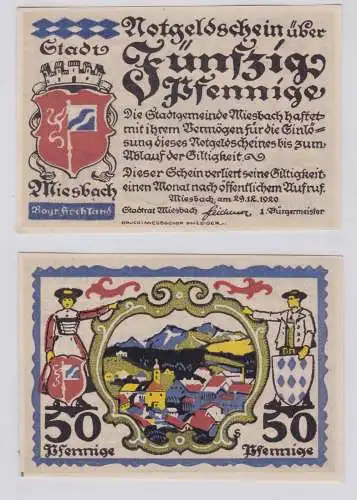 Notgeldschein über
Stadt
Fünfzig
Pfennige
Die Stadtgemeinde Miesbach haftet
mit ihrem Vermögen für die Einlö-
sung dieses Notgeldscheines bis zum
Ablauf der Giltigkeit.
Dieser Schein verliert seine Giltigkeit
einen Monat nach öffentlichem Aufruf.
Miesbach
Miesbach, am 29.12.1920
Bayr. Hochland
Stadtrat Miesbach
1. Bürgermeister
50
50
Pfennige
Pfennige